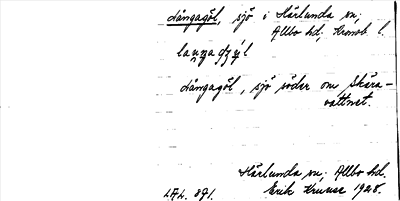 Långagöl, sjö i Härlunda sn,
Allbo hd, Kronob. l.
Långagöl, sjö söder om Skära-
vattnet.
Härlunda sn, Allbo hd.
Erik Kruuse 1928.
LAL. 891.